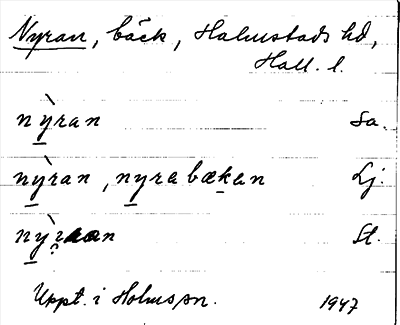 Nyran, bäck, Halmstads hd,
Hall. l.
nỳran Sa.
nỳran, nyrabækan Lj.
St.
Uppt. i Holms sn. 1947